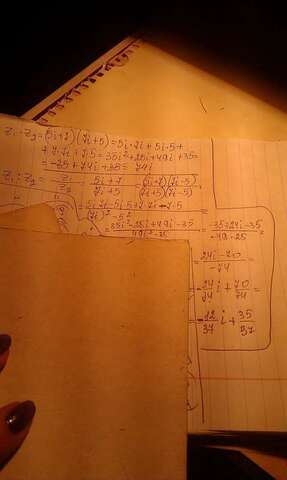 z₁·z₂=(5i+7)(7i+5)=5i·7i+5i·5+
+7·7i+7·5=35i²+25i+49i+35=
=-35+74i+35=74i
z₁:z₂=z₁/z₂=(5i+7)/(7i+5)=(5i+7)(7i-5)/(7i+5)(7i-5)=
=(5i·7i-5i·5+7·7i-7·5)/((7i)²-5²)=
=(35i²-25i+49i-35)/(49i²-25)=(-35+24i-35)/(-49-25)=
=(24i-70)/(-74)=
=-24/74i+70/74=
=-12/37i+35/37